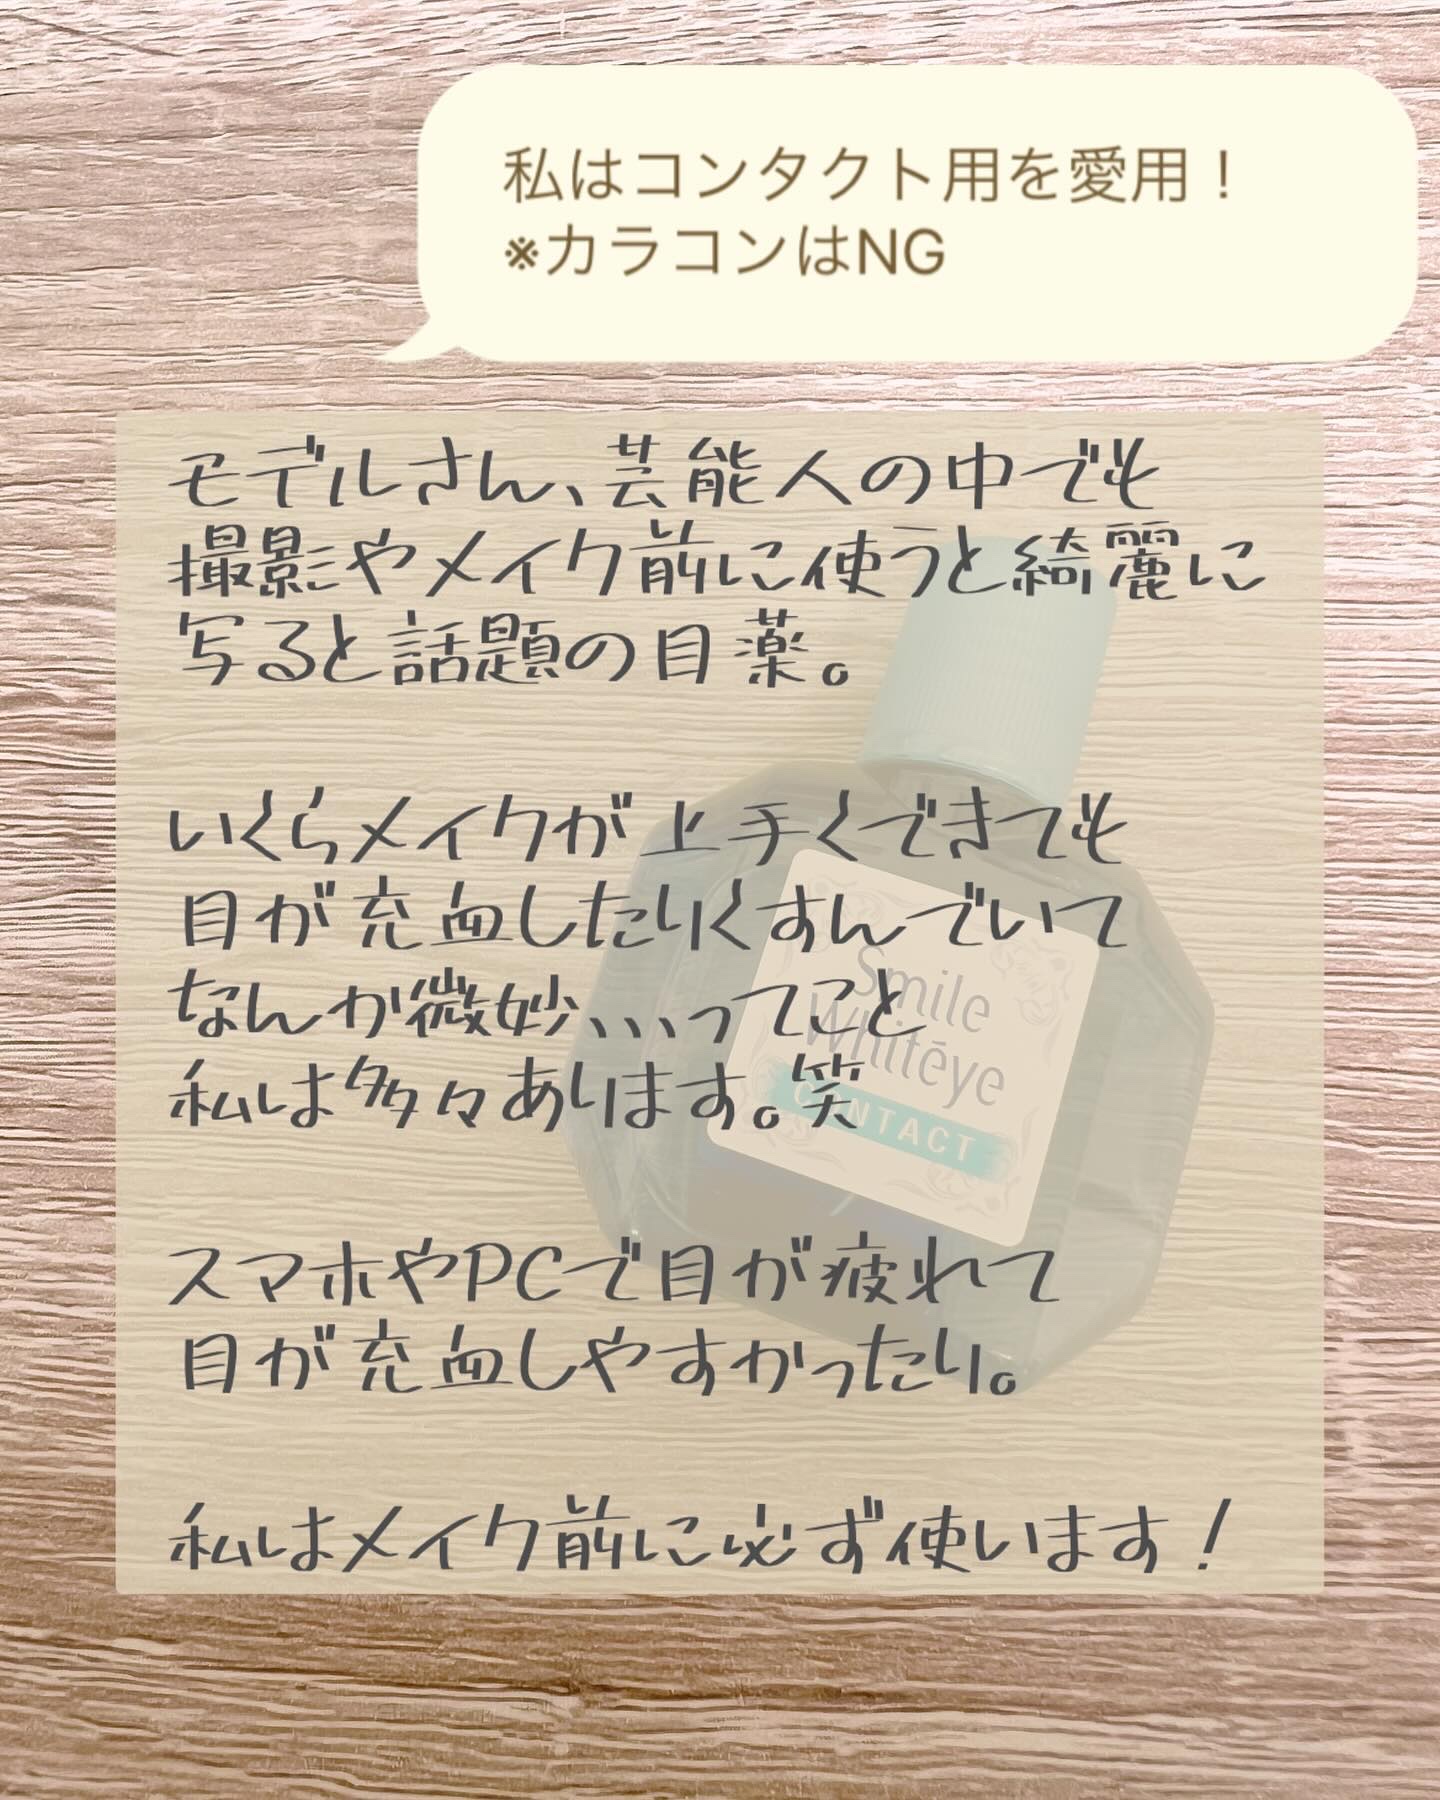 私はコンタクト用を愛用！
※カラコンはNG
モデルさん、芸能人の中でも
撮影やメイク前に使うと綺麗に
写ると話題の目薬。
いくらメイクが上手くできても
目が充血したりくすんでいて
なんか微妙、、、ってこと
私は多々あります。笑
スマホやPCで目が疲れて
目が充血しやすかったり。
私はメイク前に必ず使います！
Smile
Whitēye
CONTACT